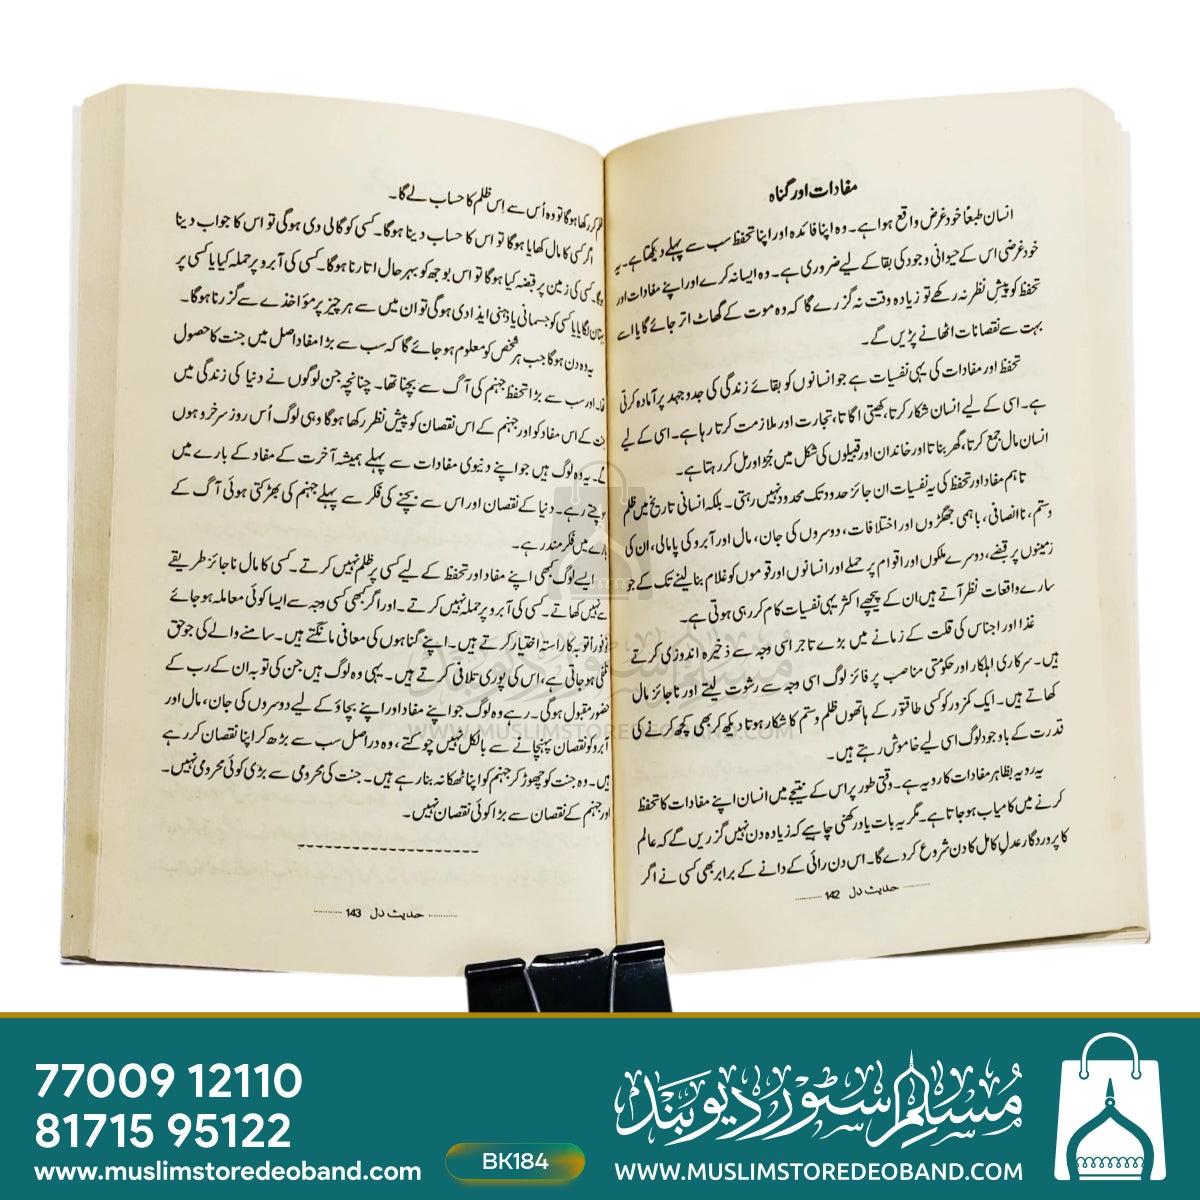 مفادات اور گناہ
انسان طبعاً خود غرض واقع ہوا ہے۔ وہ اپنا فائدہ اور اپنا تحفظ سب سے پہلے دیکھتا ہے۔ یہ
خود غرضی اس کے حیوانی وجود کی بقا کے لیے ضروری ہے۔ وہ ایسا نہ کرے اور اپنے مفادات اور
تحفظ کو پیش نظر نہ رکھے تو زیادہ وقت نہ گزرے گا کہ وہ موت کے گھاٹ اتر جائے گا یا اسے
بہت سے نقصانات اٹھانے پڑیں گے۔
تحفظ اور مفادات کی یہی نفسیات ہے جو انسانوں کو بقائے زندگی کی جدوجہد پر آمادہ کرتی
ہے۔ اسی کے لیے انسان شکار کرتا، کھیتی اگاتا، تجارت اور ملازمت کرتا رہا ہے۔ اسی کے لیے
انسان مال جمع کرتا، گھر بناتا اور خاندان اور قبیلوں کی شکل میں جُڑ اور مل کر رہتا ہے۔
تاہم مفاد اور تحفظ کی یہ نفسیات ان جائز حدود تک محدود نہیں رہتی۔ بلکہ انسانی تاریخ میں ظلم
وستم، ناانصافی، باہمی جھگڑوں اور اختلافات، دوسروں کی جان، مال اور آبرو کی پامالی، ان کی
زمینوں پر قبضے، دوسرے ملکوں اور اقوام پر حملے اور انسانوں اور قوموں کو غلام بنا لینے تک کے جو
سارے واقعات نظر آتے ہیں ان کے پیچھے اکثر یہی نفسیات کام کر رہی ہوتی ہے۔
غذا اور اجناس کی قلت کے زمانے میں بڑے تاجر اسی وجہ سے ذخیرہ اندوزی کرتے
ہیں۔ سرکاری اہلکار اور حکومتی مناصب پر فائز لوگ اسی وجہ سے رشوت لیتے اور ناجائز مال
کھاتے ہیں۔ ایک کمزور کو کسی طاقتور کے ہاتھوں ظلم وستم کا شکار ہوتا دیکھ کر بھی کچھ کرنے کی
قدرت کے باوجود لوگ اسی لیے خاموش رہتے ہیں۔
یہ رویہ بظاہر مفادات کا رویہ ہے۔ وقتی طور پر اس کے نتیجے میں انسان اپنے مفادات کا تحفظ
کرنے میں کامیاب ہوجاتا ہے۔ مگر یہ بات یاد رکھنی چاہیے کہ زیادہ دن نہیں گزریں گے کہ عالم
کا پروردگار عدلِ کامل کا دن شروع کردے گا۔ اس دن رائی کے دانے کے برابر بھی کسی نے اگر
حدیث دل 142
ظلم کر رکھا ہوگا تو وہ اُس سے اِس ظلم کا حساب لے گا۔
اگر کسی کا مال کھایا ہوگا تو اس کا حساب دینا ہوگا۔ کسی کو گالی دی ہوگی تو اس کا جواب دینا
ہوگا۔ کسی کی زمین پر قبضہ کیا ہوگا تو اس بوجھ کو بہرحال اتارنا ہوگا۔ کسی کی آبرو پر حملہ کیا یا کسی پر
بہتان لگایا یا کسی کو جسمانی یا ذہنی ایذا دی ہوگی تو ان میں سے ہر چیز پر مؤاخذے سے گزرنا ہوگا۔
یہ وہ دن ہوگا جب ہر شخص کو معلوم ہوجائے گا کہ سب سے بڑا مفاد اصل میں جنت کا حصول
تھا۔ اور سب سے بڑا تحفظ جہنم کی آگ سے بچنا تھا۔ چنانچہ جن لوگوں نے دنیا کی زندگی میں
جنت کے اس مفاد کو اور جہنم کے اس نقصان کو پیش نظر رکھا ہوگا وہی لوگ اُس روز سرخرو ہوں
گے۔ یہ وہ لوگ ہیں جو اپنے دنیوی مفادات سے پہلے ہمیشہ آخرت کے مفاد کے بارے میں
سوچتے رہے۔ دنیا کے نقصان اور اس سے بچنے کی فکر سے پہلے جہنم کی بھڑکتی ہوئی آگ کے
بارے میں فکر مند رہے۔
ایسے لوگ کبھی اپنے مفاد اور تحفظ کے لیے کسی پر ظلم نہیں کرتے۔ کسی کا مال ناجائز طریقے
سے نہیں کھاتے۔ کسی کی آبرو پر حملہ نہیں کرتے۔ اور اگر کبھی کسی وجہ سے ایسا کوئی معاملہ ہوجائے
تو فوراً توبہ کا راستہ اختیار کرتے ہیں۔ اپنے گناہوں کی معافی مانگتے ہیں۔ سامنے والے کی جو حق
تلفی ہوجاتی ہے، اس کی پوری تلافی کرتے ہیں۔ یہی وہ لوگ ہیں جن کی توبہ ان کے رب کے
حضور مقبول ہوگی۔ رہے وہ لوگ جو اپنے مفاد اور اپنے بچاؤ کے لیے دوسروں کی جان، مال اور
آبرو کو نقصان پہنچانے سے بالکل نہیں چوکتے، وہ دراصل سب سے بڑھ کر اپنا نقصان کر رہے
ہیں۔ وہ جنت کو چھوڑ کر جہنم کو اپنا ٹھکانہ بنا رہے ہیں۔ جنت کی محرومی سے بڑی کوئی محرومی نہیں۔
اور جہنم کے نقصان سے بڑا کوئی نقصان نہیں۔
حدیث دل 143
مسلم سٹور دیوبند
WWW.MUSLIMSTOREDEOBAND.COM
77009 12110
81715 95122
www.muslimstoredeoband.com
BK184
مسلم سٹور دیوبند
WWW.MUSLIMSTOREDEOBAND.COM